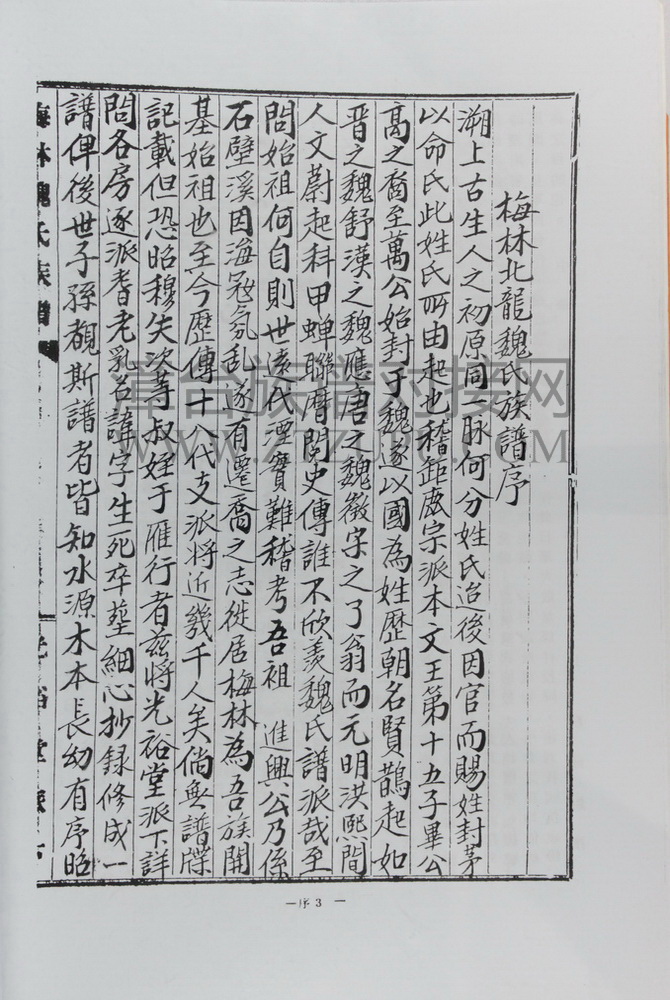 梅林北龍魏氏族譜序
溯上古生人之初原同一脉何分姓氏迨後因官而賜姓封茅
以命氏此姓氏所由起也稽鉅鹿宗派本文王第十五子畢公
高之裔至萬公始封于魏遂以國為姓歷朝名賢鵲起如
晋之魏舒漢之魏應唐之魏徵宋之了翁而元明洪熙間
人文蔚起科甲蝉聯曆閱史傳誰不欣羨魏氏譜派哉至
問始祖何自則世遠代湮實難稽考吾祖 進興公乃係
石壁溪因海冦氛乱遂有遷喬之志徙居梅林為吾族開
基始祖也至今歷傳十八代支派將近幾千人矣倘無譜牒
記載但恐昭穆失次等叔姪于雁行者兹將光裕堂派下詳
問各房逐派耆老乳名諱字生死卒塟細心抄錄修成一
譜俾後世子孫覩斯譜者皆知水源木本長幼有序昭
梅林魏氏族譜
光裕堂
章合族谱对接网
序 3